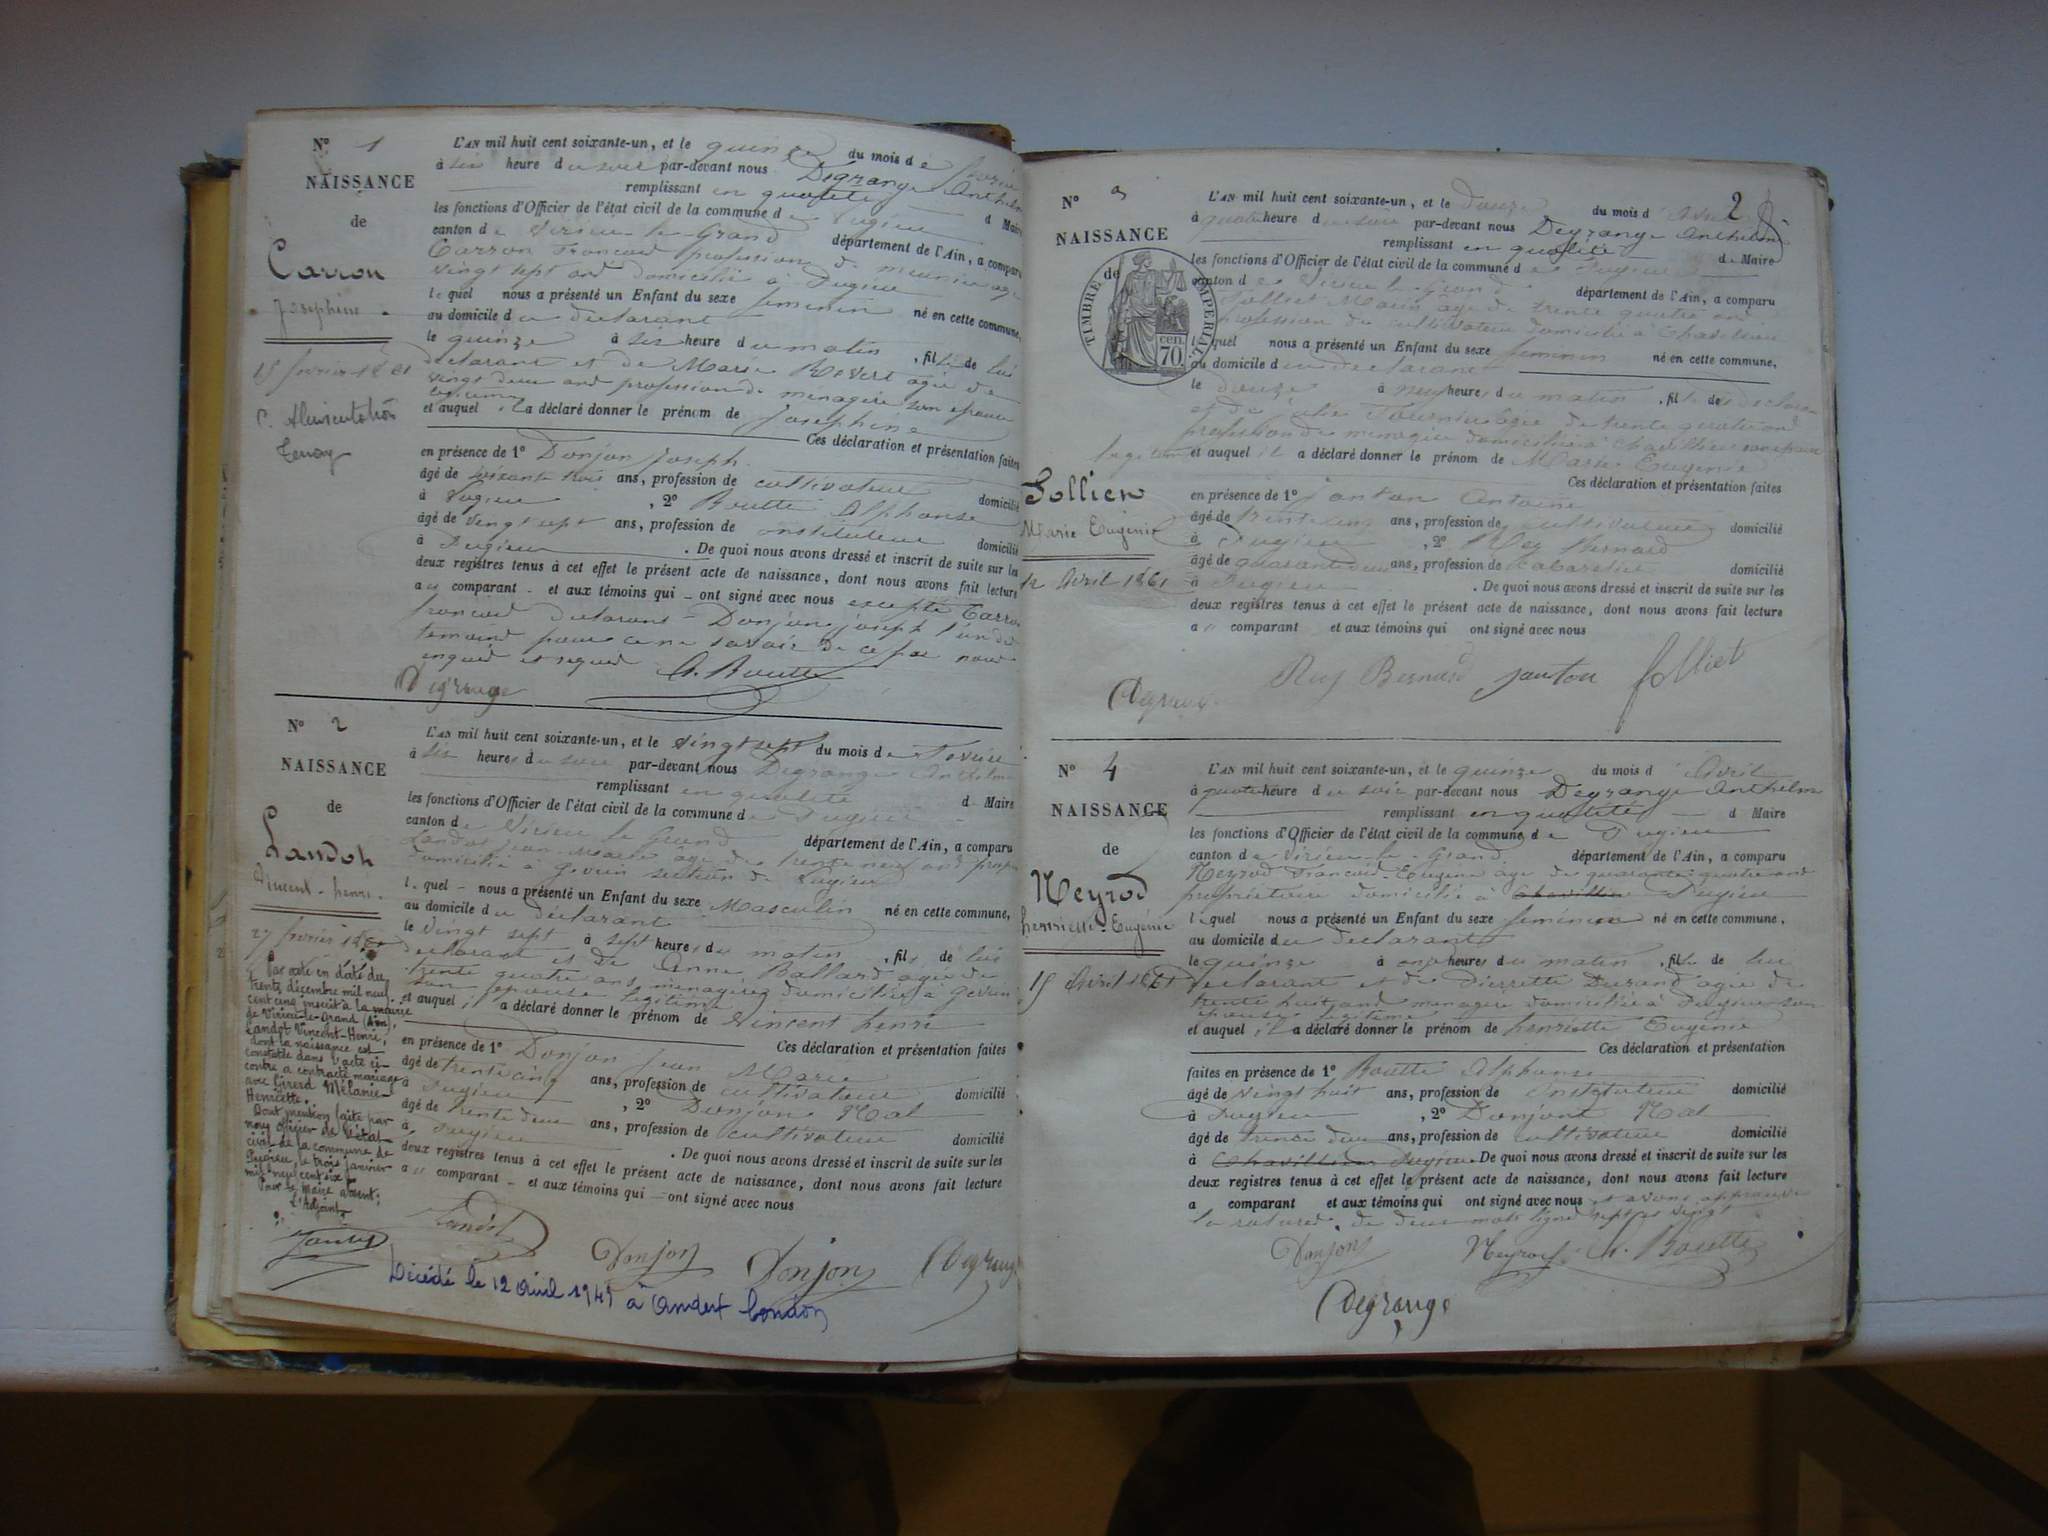 N° 1
NAISSANCE
de
Carron
Josephine
15 février 1861
L'AN mil huit cent soixante-un, et le quinze du mois de février
à six heure du soir par-devant nous Degrange Anthelme
remplissant en qualité d Maire
les fonctions d'Officier de l'état civil de la commune de Pugieu
canton de Virieu le Grand département de l'Ain, a comparu
Carron Francois profession de meunier age
vingt sept ans domicilié à Pugieu
lequel nous a présenté un Enfant du sexe feminin né en cette commune,
au domicile du declarant
le quinze à six heure du matin, fille de lui
declarant et de Marie agée de
vingt deux ans profession de menagere son epouse
et auquel il a déclaré donner le prénom de Josephine
Ces déclaration et présentation faites
en présence de 1° Donjon Joseph
âgé de soixante trois ans, profession de cultivateur domicilié
à Pugieu, 2° Boutte Alphonse
âgé de vingt sept ans, profession de instituteur domicilié
à Pugieu. De quoi nous avons dressé et inscrit de suite sur les
deux registres tenus à cet effet le présent acte de naissance, dont nous avons fait lecture
aux comparant et aux témoins qui ont signé avec nous excepté Carron
francois declarant Donjon joseph l'un des
temoins pour ne savoir de ce faire
enquis et requis A. Boutte
Degrange
N° 2
NAISSANCE
de
Landot
Vincent-henri
27 février 1861
Par acte en date du
trente décembre mil neuf
cent cinq inscrit à la mairie
de Virieu-le-Grand (Ain),
Landot Vincent-Henri,
dont la naissance est
constatée dans l'acte ci-
contre a contracté mariage
avec Girerd Mélanie
Henriette.
Dont mention faite par
nous officier de l'état
civil de la commune de
Pugieu, le trois janvier
mil neuf cent six
Pour le Maire absent,
L'Adjoint,
L'AN mil huit cent soixante-un, et le vingt sept du mois de Fevrier
à six heures du soir par-devant nous Degrange Anthelme
remplissant en qualité d Maire
les fonctions d'Officier de l'état civil de la commune de Pugieu
canton de Virieu le Grand département de l'Ain, a comparu
Landot Jean Marie âgé de trente neuf ans
domicilié à Gevrin section de Pugieu
lequel nous a présenté un Enfant du sexe Masculin né en cette commune,
au domicile du declarant
le vingt sept à sept heures du matin, fils de lui
declarant et de Anne Ballard agée de
trente quatre ans menagere domiciliée à Gevrin
son epouse legitime
et auquel il a déclaré donner le prénom de Vincent henri
Ces déclaration et présentation faites
en présence de 1° Donjon Jean Marie
âgé de trente cinq ans, profession de cultivateur domicilié
à Pugieu, 2° Donjon
âgé de trente deux ans, profession de cultivateur domicilié
à Pugieu. De quoi nous avons dressé et inscrit de suite sur les
deux registres tenus à cet effet le présent acte de naissance, dont nous avons fait lecture
a comparant et aux témoins qui ont signé avec nous
Landot
Donjon Donjon Degrange
Décédé le 12 Avril 1941 à Andert Condon
2
N° 3
NAISSANCE
de
TIMBRE IMPERIAL
70 cen.
Marie Eugenie
12 Avril 1861
L'AN mil huit cent soixante-un, et le douze du mois d'Avril
à quatre heure du soir par-devant nous Degrange Anthelme
remplissant en qualité de Maire
les fonctions d'Officier de l'état civil de la commune de Pugieu
canton de Virieu le Grand département de l'Ain, a comparu
âgé de trente quatre ans
profession de cultivateur domicilié à Chavillieu
lequel nous a présenté un Enfant du sexe feminin né en cette commune,
au domicile du declarant
le douze à neuf heures du matin, fille de
agée de trente quatre ans
profession de menagere domiciliée à Chavillieu son epouse
legitime et auquel il a déclaré donner le prénom de Marie Eugenie
Ces déclaration et présentation faites
en présence de 1° Janton Antoine
âgé de trente cinq ans, profession de cultivateur domicilié
à Pugieu, 2° Rey Bernard
âgé de quarante deux ans, profession de Cabaretier domicilié
à Pugieu. De quoi nous avons dressé et inscrit de suite sur les
deux registres tenus à cet effet le présent acte de naissance, dont nous avons fait lecture
a comparant et aux témoins qui ont signé avec nous
Degrange Rey Bernard Janton Jolliet
N° 4
NAISSANCE
de
Neyrod
henriette-Eugénie
15 Avril 1861
L'AN mil huit cent soixante-un, et le quinze du mois d Avril
à quatre heure du soir par-devant nous Degrange Anthelme
remplissant en qualité d Maire
les fonctions d'Officier de l'état civil de la commune de Pugieu
canton de Virieu-le-Grand département de l'Ain, a comparu
Neyrod Francois Eugene âgé de quarante quatre ans
propriétaire domicilié à Chavillieu Pugieu
lequel nous a présenté un Enfant du sexe feminin né en cette commune,
au domicile du declarant
le quinze à onze heures du matin, fille de lui
declarant et de Pierrette Durand agée de
trente huit ans menagere domiciliée à Pugieu son
epouse legitime
et auquel il a déclaré donner le prénom de henriette Eugénie
Ces déclaration et présentation
faites en présence de 1° Boutte Alphonse
âgé de vingt huit ans, profession de Instituteur domicilié
à Pugieu, 2° Donjon
âgé de trente deux ans, profession de cultivateur domicilié
à Chavillieu Pugieu. De quoi nous avons dressé et inscrit de suite sur les
deux registres tenus à cet effet le présent acte de naissance, dont nous avons fait lecture
a comparant et aux témoins qui ont signé avec nous et avons approuvé
la rature de deux mots ligne sept et vingt
Donjon Neyrod A. Boutte
Degrange